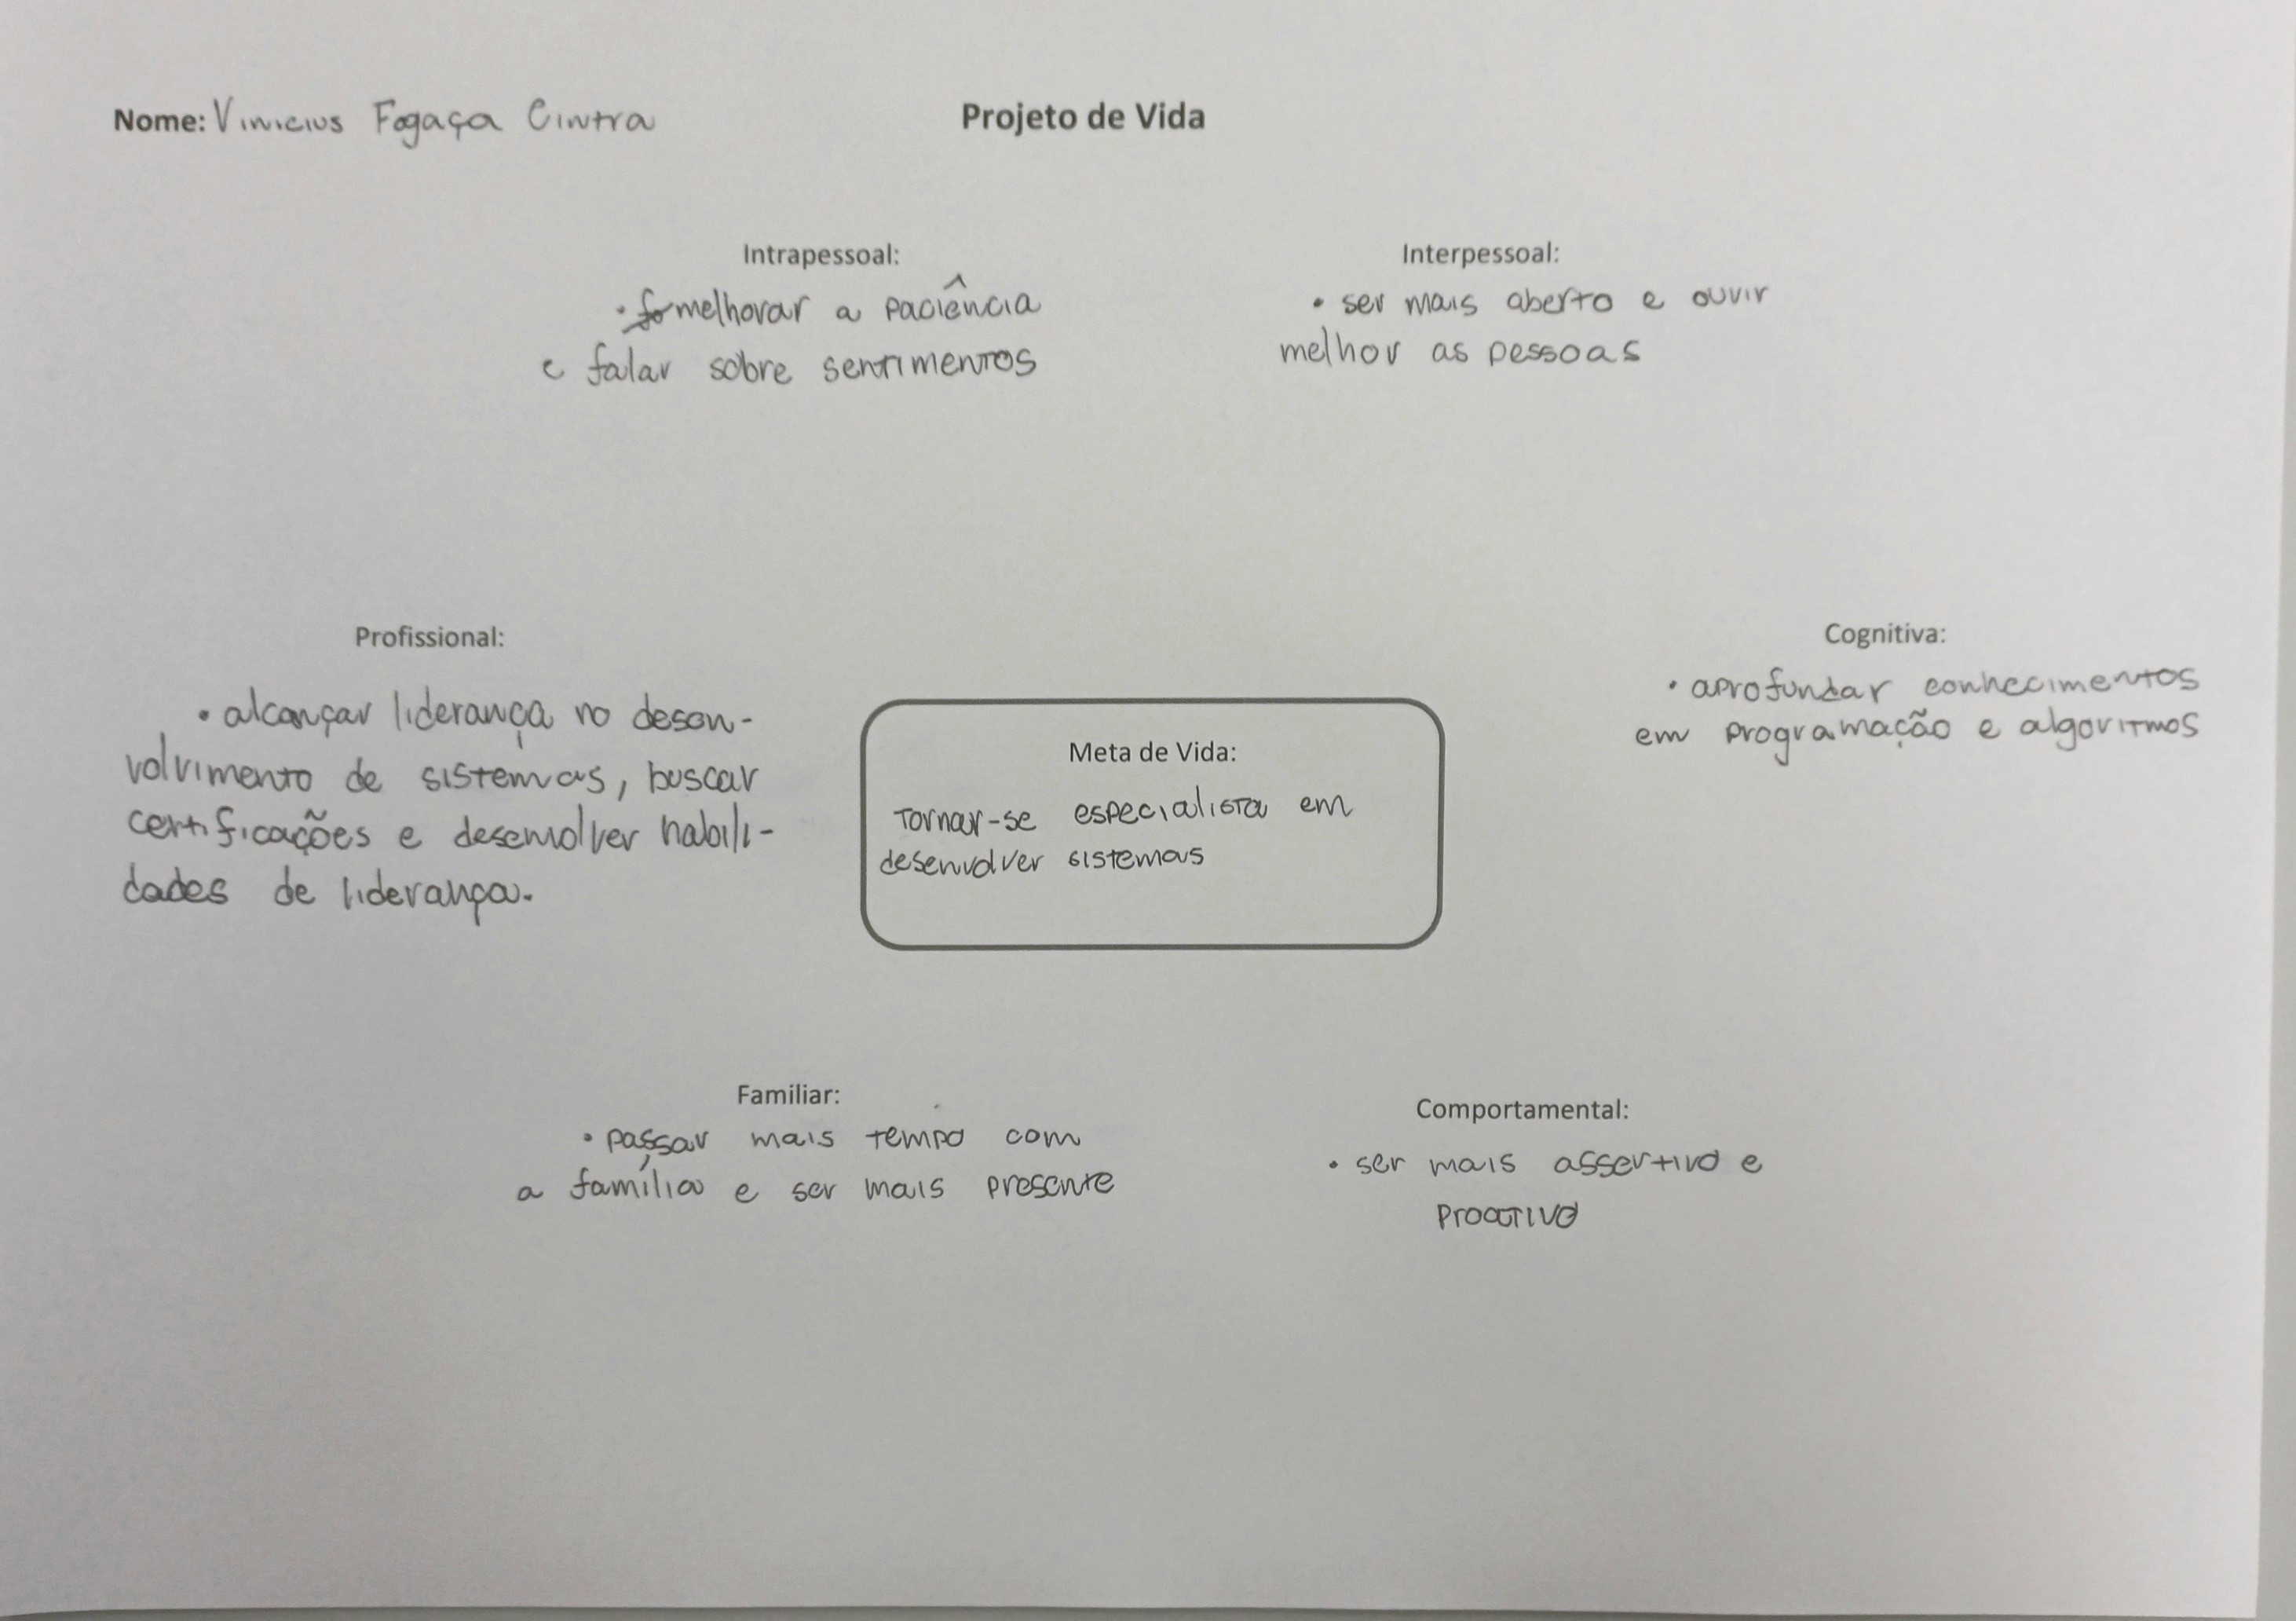 Nome: Vinicius Fogaça Cintra
Projeto de Vida
Intrapessoal:
• melhorar a paciência
e falar sobre sentimentos
Interpessoal:
• ser mais aberto e ouvir
melhor as pessoas
Profissional:
• alcançar liderança no desen-
volvimento de sistemas, buscar
certificações e desenvolver habili-
dades de liderança.
Meta de Vida:
Tornar-se especialista em
desenvolver sistemas
Cognitiva:
• aprofundar conhecimentos
em programação e algoritmos
Familiar:
• passar mais tempo com
a família e ser mais presente
Comportamental:
• ser mais assertivo e
proativo